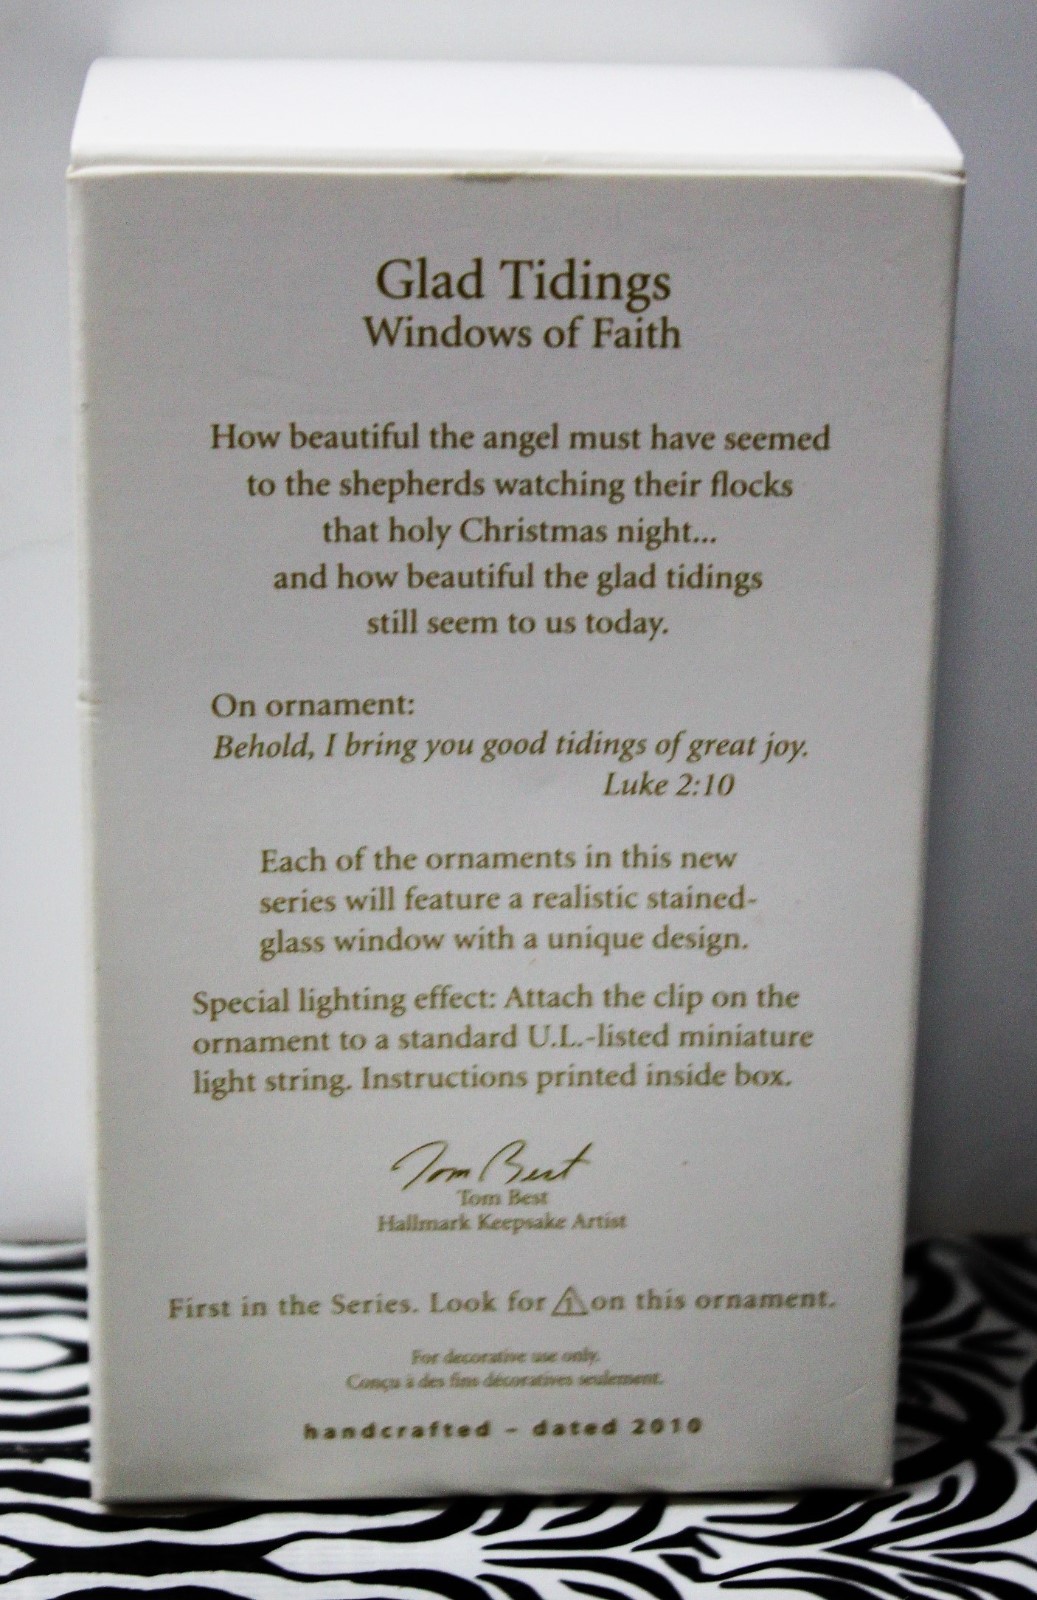 Glad Tidings
Windows of Faith
How beautiful the angel must have seemed
to the shepherds watching their flocks
that holy Christmas night...
and how beautiful the glad tidings
still seem to us today.
On ornament:
Behold, I bring you good tidings of great joy.
Luke 2:10
Each of the ornaments in this new
series will feature a realistic stained-
glass window with a unique design.
Special lighting effect: Attach the clip on the
ornament to a standard U.L.-listed miniature
light string. Instructions printed inside box.
Tom Best
Tom Best
Hallmark Keepsake Artist
First in the Series. Look for 1 on this ornament.
For decorative use only.
Conçu à des fins décoratives seulement.
handcrafted – dated 2010